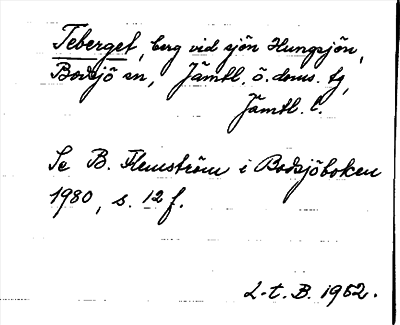 Teberget, berg vid sjön Hungsjön,
Bodsjö sn, Jämtl. ö. doms. tg,
Jämtl. l.
Se B. Flemström i Bodsjöboken
1980, s. 12 f.
L-t. B. 1962.